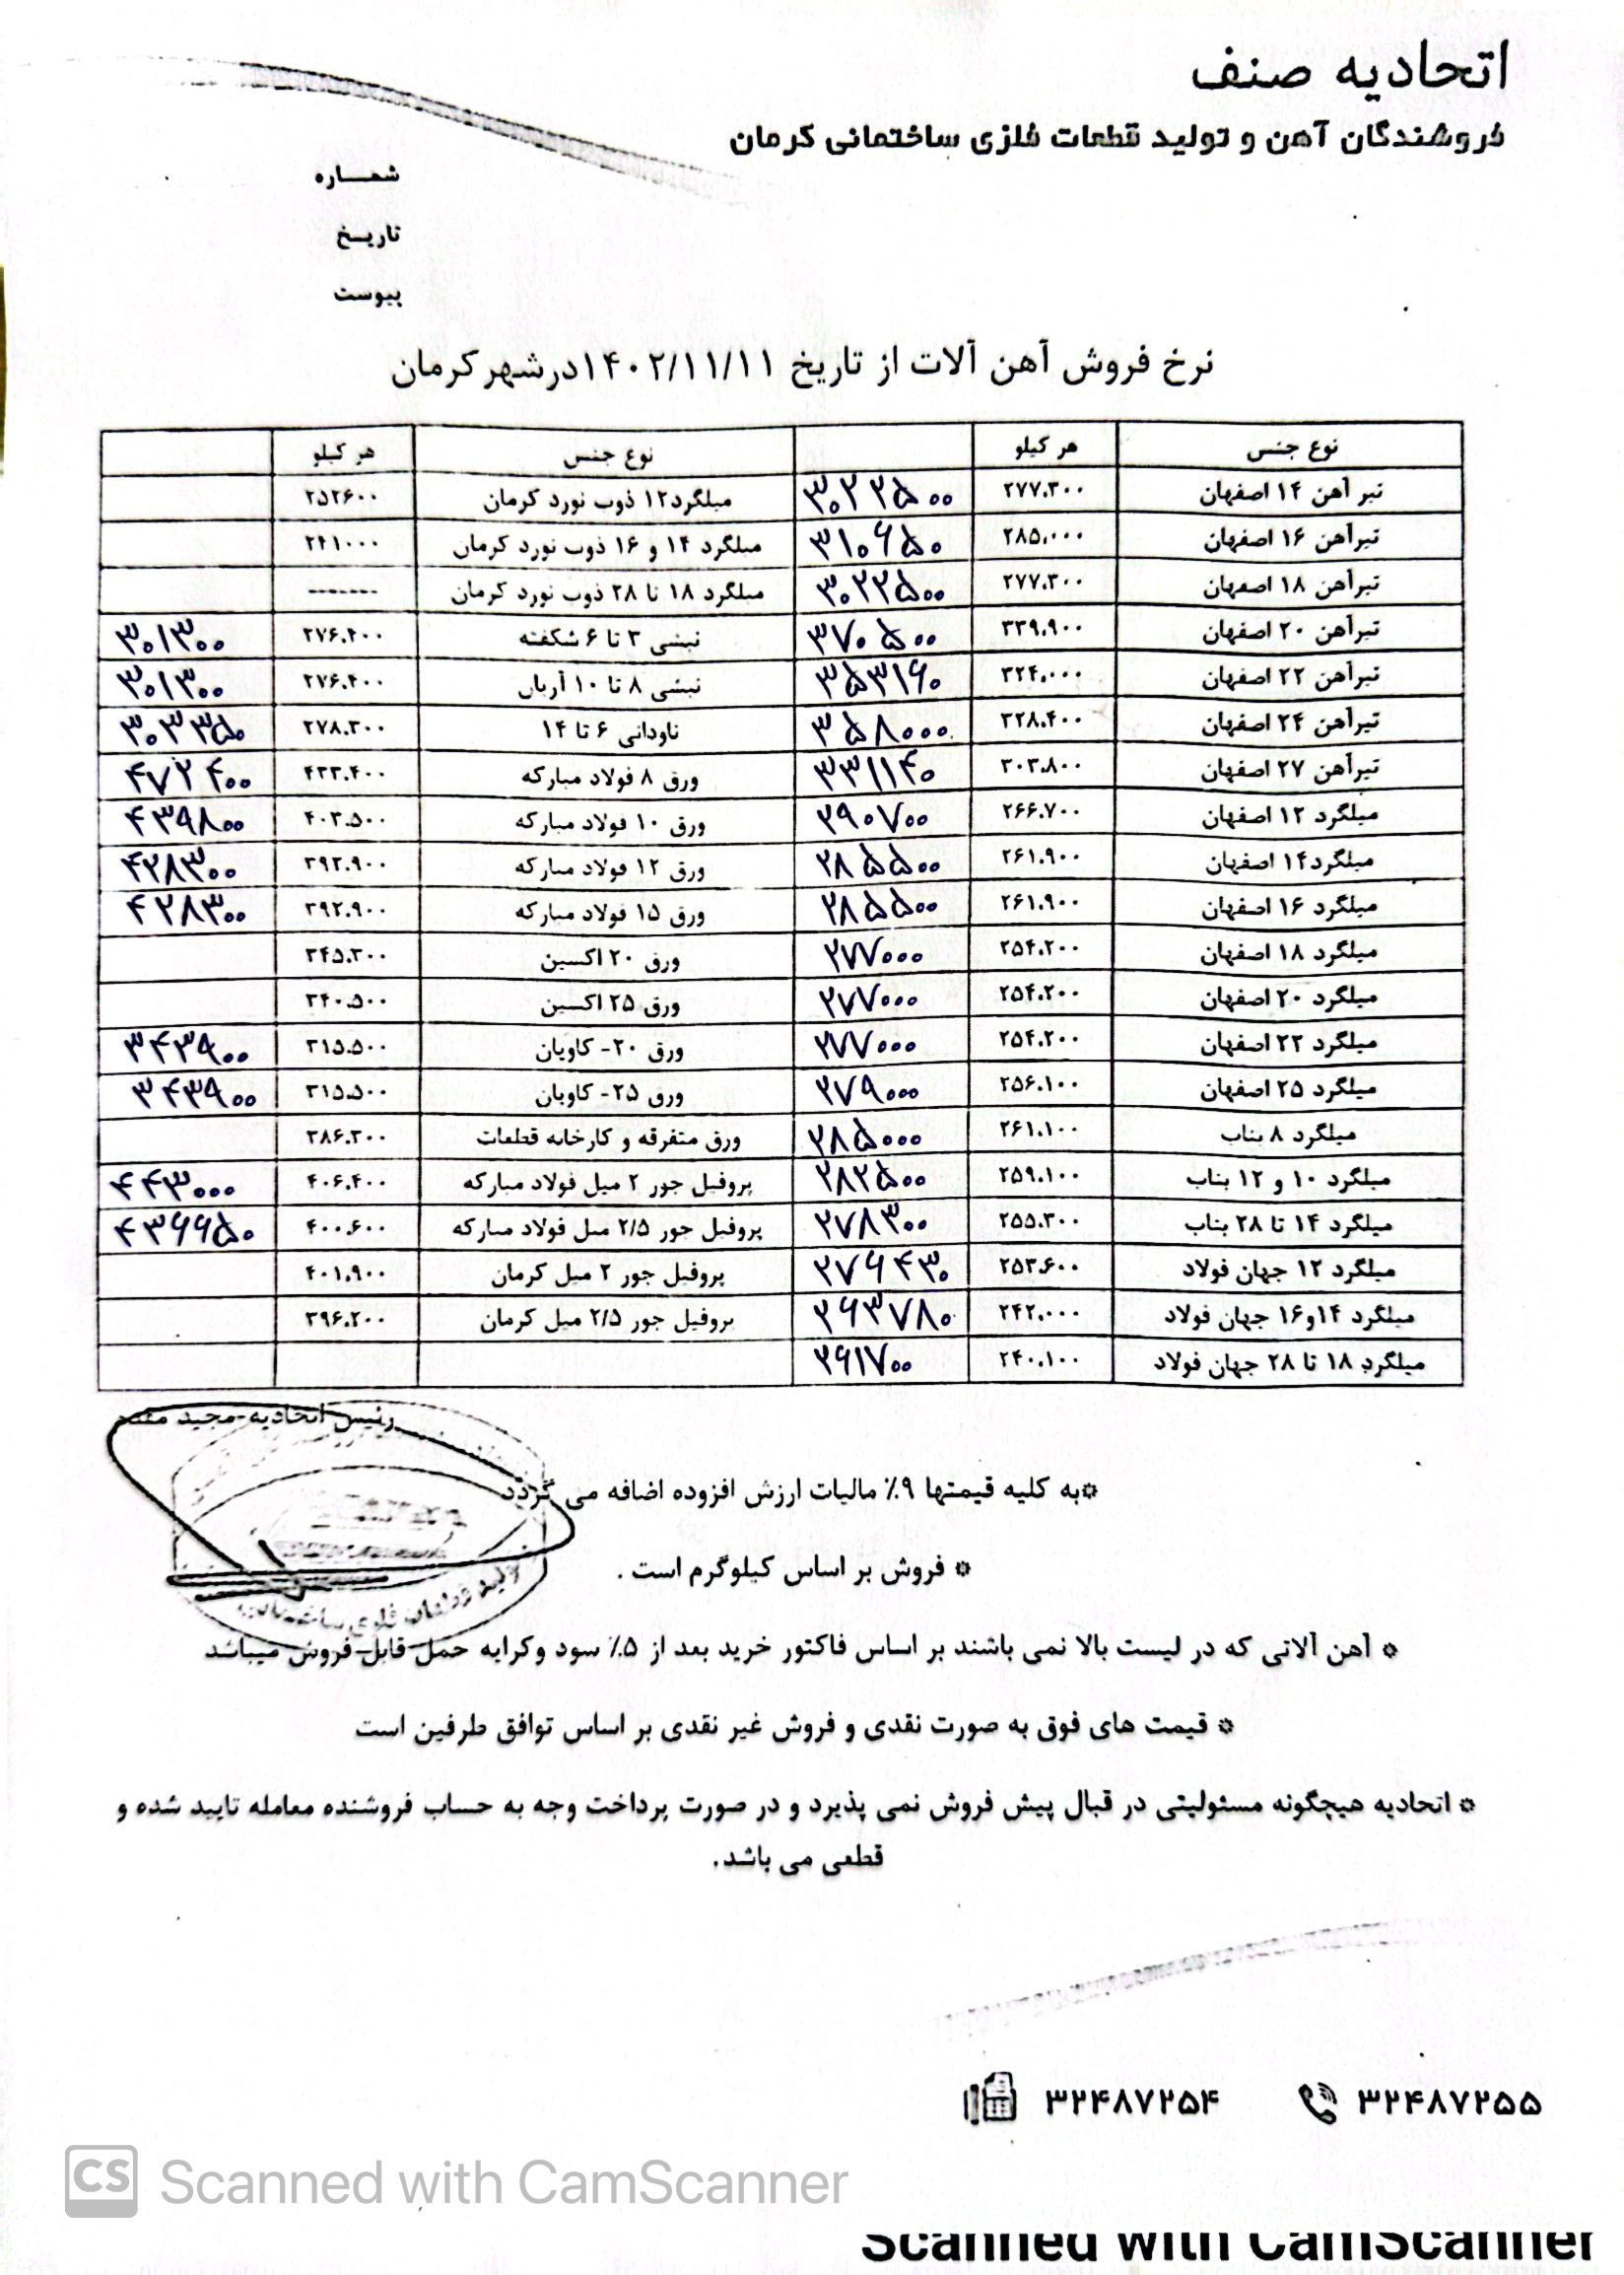 اتحادیه صنف
فروشندگان آهن و تولید قطعات فلزی ساختمانی کرمان
شماره
تاریخ
پیوست
نرخ فروش آهن آلات از تاریخ ۱۴۰۲/۱۱/۱۱درشهرکرمان
نوع جنس هر کیلو نوع جنس هر کیلو
تیر آهن ۱۴ اصفهان ۲۷۷.۳۰۰ ۳۰۲۲۵۰۰ میلگرد۱۲ ذوب نورد کرمان ۲۵۲۶۰۰
تیرآهن ۱۶ اصفهان ۲۸۵.۰۰۰ ۳۱۰۶۵۰ میلگرد ۱۴ و ۱۶ ذوب نورد کرمان ۲۴۱۰۰۰
تیرآهن ۱۸ اصفهان ۲۷۷.۳۰۰ ۳۰۲۲۵۰۰ میلگرد ۱۸ تا ۲۸ ذوب نورد کرمان -------
تیرآهن ۲۰ اصفهان ۳۳۹.۹۰۰ ۳۷۰۵۰۰ نبشی ۳ تا ۶ شکفته ۲۷۶.۴۰۰ ۳۰۱۳۰۰
تیرآهن ۲۲ اصفهان ۳۲۴.۰۰۰ ۳۵۳۱۶۰ نبشی ۸ تا ۱۰ آریان ۲۷۶.۴۰۰ ۳۰۱۳۰۰
تیرآهن ۲۴ اصفهان ۳۲۸.۴۰۰ ۳۵۸۰۰۰ ناودانی ۶ تا ۱۴ ۲۷۸.۳۰۰ ۳۰۳۳۵۰
تیرآهن ۲۷ اصفهان ۳۰۳.۸۰۰ ۳۳۱۱۴۰ ورق ۸ فولاد مبارکه ۴۳۳.۴۰۰ ۴۷۲۴۰۰
میلگرد ۱۲ اصفهان ۲۶۶.۷۰۰ ۲۹۰۷۰۰ ورق ۱۰ فولاد مبارکه ۴۰۳.۵۰۰ ۴۳۹۸۰۰
میلگرد۱۴ اصفهان ۲۶۱.۹۰۰ ۲۸۵۵۰۰ ورق ۱۲ فولاد مبارکه ۳۹۲.۹۰۰ ۴۲۸۳۰۰
میلگرد ۱۶ اصفهان ۲۶۱.۹۰۰ ۲۸۵۵۰۰ ورق ۱۵ فولاد مبارکه ۳۹۲.۹۰۰ ۴۲۸۳۰۰
میلگرد ۱۸ اصفهان ۲۵۴.۲۰۰ ۲۷۷۰۰۰ ورق ۲۰ اکسین ۳۴۵.۳۰۰
میلگرد ۲۰ اصفهان ۲۵۴.۲۰۰ ۲۷۷۰۰۰ ورق ۲۵ اکسین ۳۴۰.۵۰۰
میلگرد ۲۲ اصفهان ۲۵۴.۲۰۰ ۲۷۷۰۰۰ ورق ۲۰- کاویان ۳۱۵.۵۰۰ ۳۴۳۹۰۰
میلگرد ۲۵ اصفهان ۲۵۶.۱۰۰ ۲۷۹۰۰۰ ورق ۲۵- کاویان ۳۱۵.۵۰۰ ۳۴۳۹۰۰
میلگرد ۸ بناب ۲۶۱.۱۰۰ ۲۸۵۰۰۰ ورق متفرقه و کارخانه قطعات ۳۸۶.۳۰۰
میلگرد ۱۰ و ۱۲ بناب ۲۵۹.۱۰۰ ۲۸۲۵۰۰ پروفیل جور ۲ میل فولاد مبارکه ۴۰۶.۴۰۰ ۴۴۳۰۰۰
میلگرد ۱۴ تا ۲۸ بناب ۲۵۵.۳۰۰ ۲۷۸۳۰۰ پروفیل جور ۲/۵ میل فولاد مبارکه ۴۰۰.۶۰۰ ۴۳۶۶۵۰
میلگرد ۱۲ جهان فولاد ۲۵۳.۶۰۰ ۲۷۶۴۳۰ پروفیل جور ۲ میل کرمان ۴۰۱.۹۰۰
میلگرد ۱۴و۱۶ جهان فولاد ۲۴۲.۰۰۰ ۲۶۳۷۸۰ پروفیل جور ۲/۵ میل کرمان ۳۹۶.۲۰۰
میلگرد ۱۸ تا ۲۸ جهان فولاد ۲۴۰.۱۰۰ ۲۶۱۷۰۰
رئیس اتحادیه-مجید
*به کلیه قیمتها ۹٪ مالیات ارزش افزوده اضافه می گردد
* فروش بر اساس کیلوگرم است .
* آهن آلاتی که در لیست بالا نمی باشند بر اساس فاکتور خرید بعد از ۵٪ سود وکرایه حمل قابل فروش میباشد
* قیمت های فوق به صورت نقدی و فروش غیر نقدی بر اساس توافق طرفین است
* اتحادیه هیچگونه مسئولیتی در قبال پیش فروش نمی پذیرد و در صورت پرداخت وجه به حساب فروشنده معامله تایید شده و
قطعی می باشد.
۳۲۴۸۷۲۵۵ ۳۲۴۸۷۲۵۴
CS Scanned with CamScanner
Scanned with CamScanner